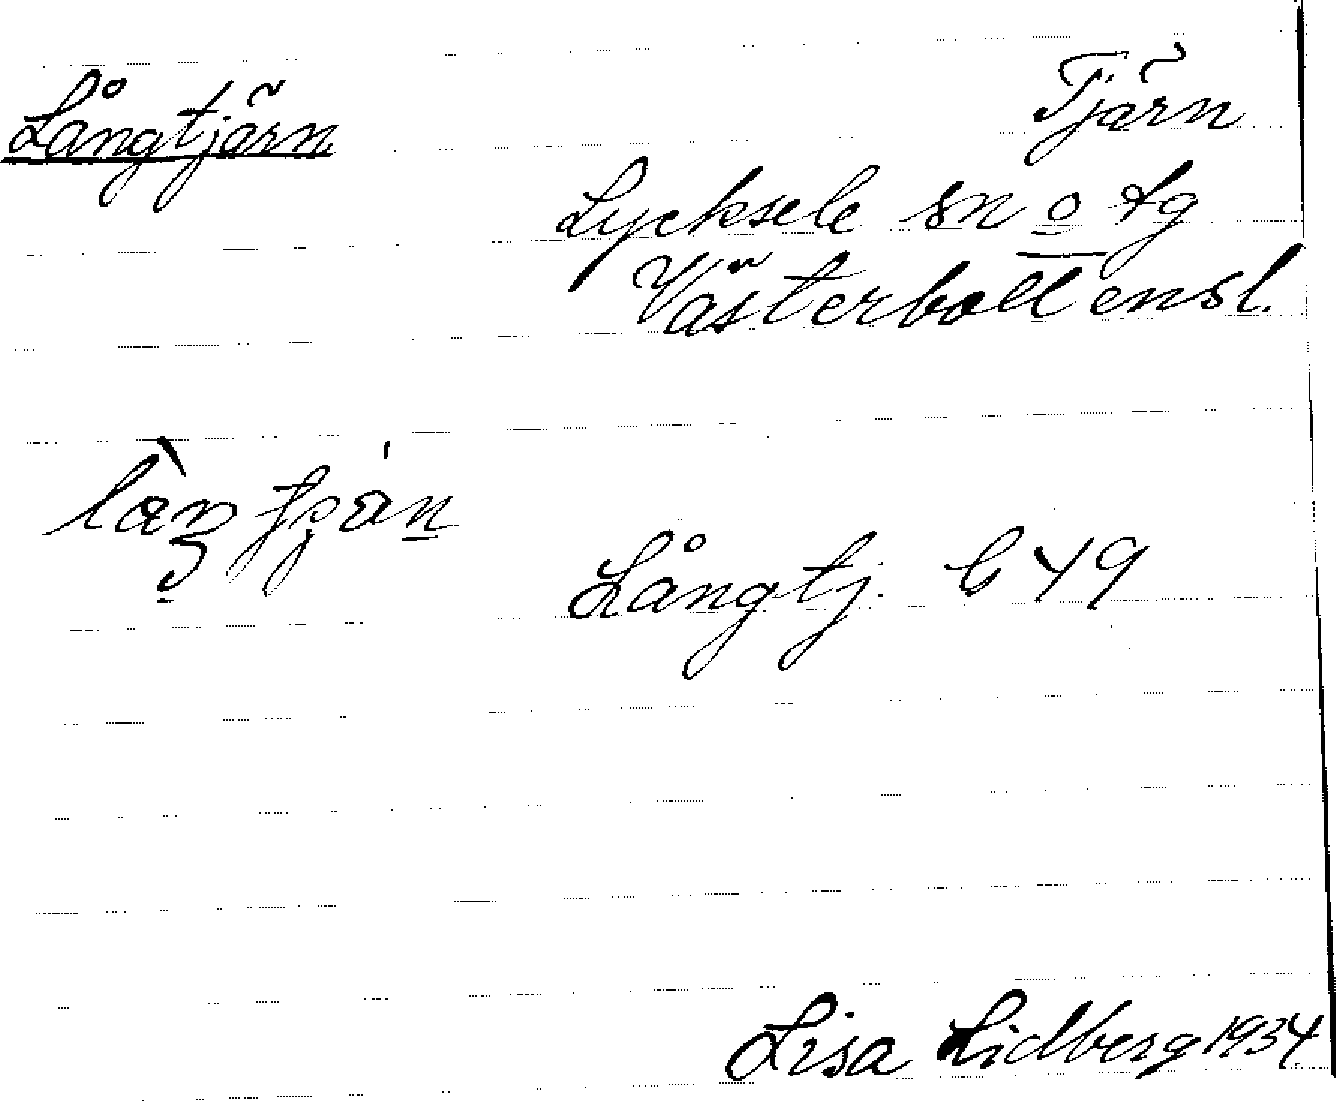 Långtjärn Tjärn
Lycksele sn o tg
Västerbottensl.
Långtj. C 49
Lisa Lidberg 1934